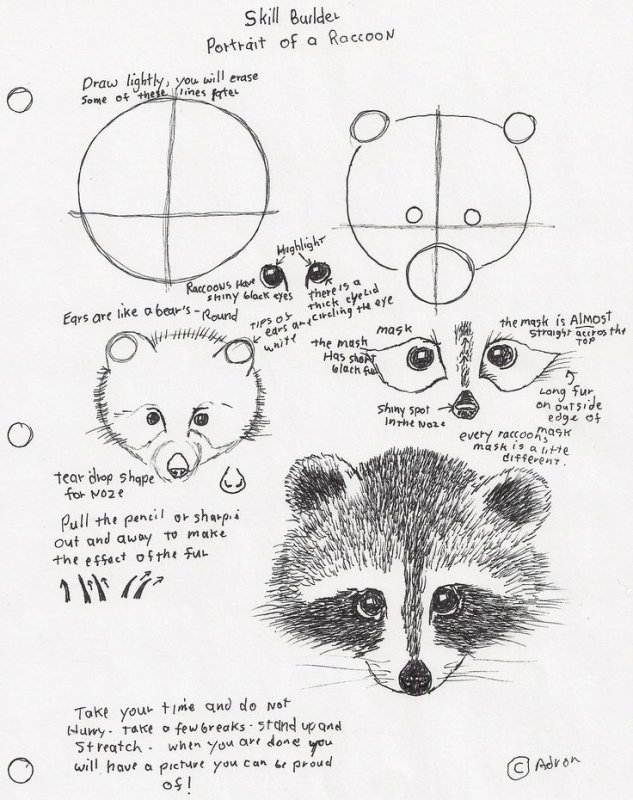 Skill Builder
Portrait of a Raccoon
Draw lightly, you will erase
some of these lines later
Highlight
Raccoons Have
shiny black eyes
there is a
thick eyelid
circling the eye
Ears are like a bear's - Round
Tips of
ears are
white
mask
the mask
Has short
black fur
the mask is ALMOST
straight accros the
TOP
Shiny spot
in the Noze
Long fur
on outside
edge of
mask
every raccoons
mask is a little
different.
tear drop shape
for Noze
Pull the pencil or sharpie
out and away to make
the effect of the fur
Take your time and do not
Hurry - take a few breaks - stand up and
Streatch - when you are done you
will have a picture you can be proud
of!
© Adron